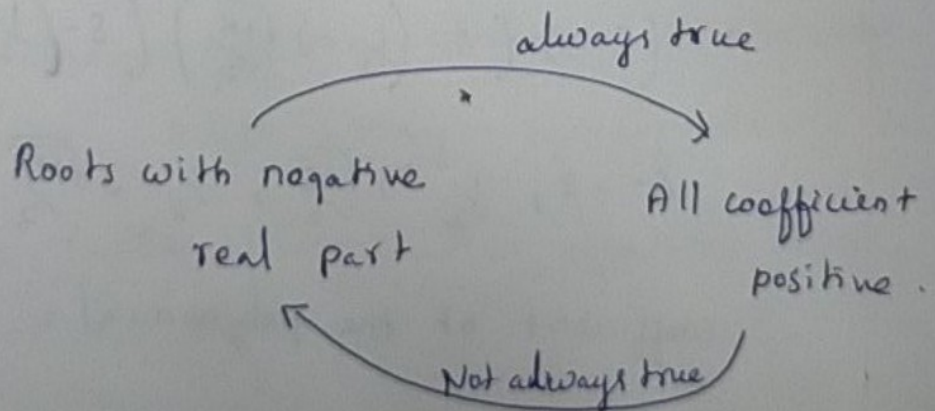 always true
Roots with negative
real part
All coefficient
positive.
Not always true